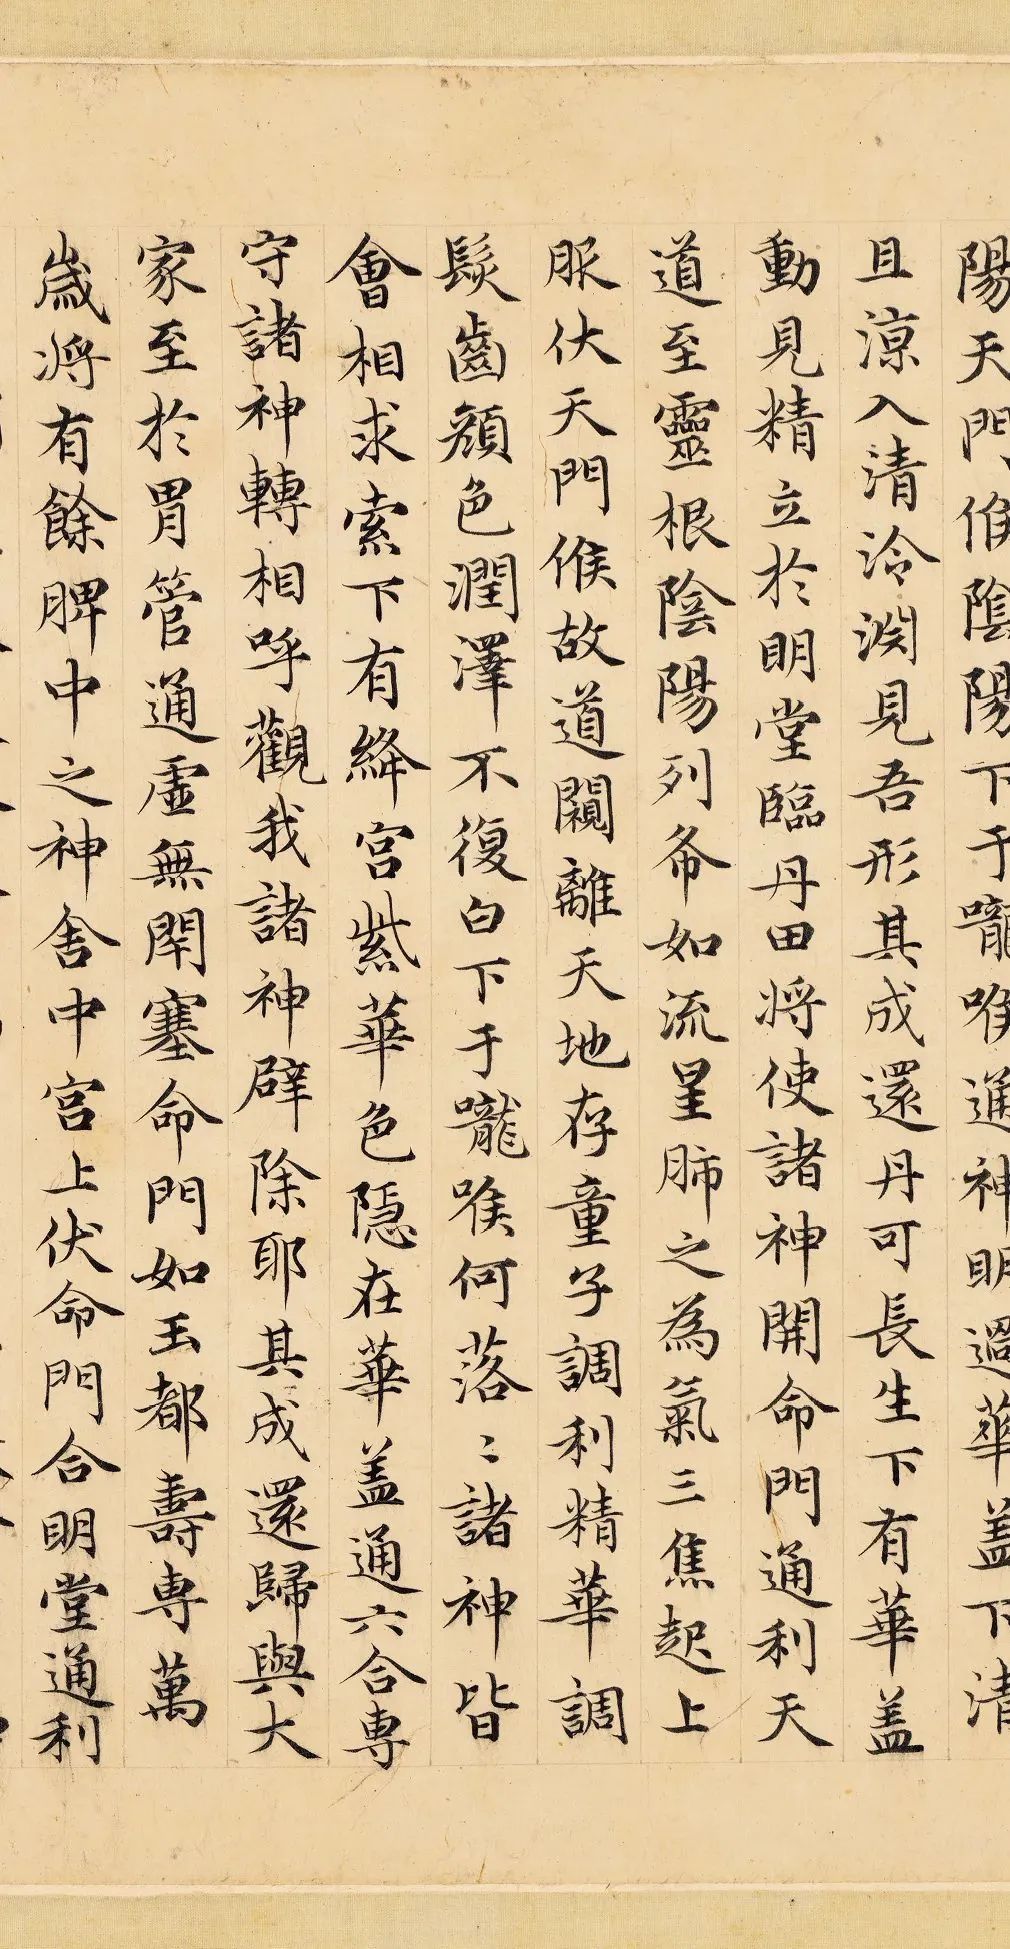 陽天門候陰陽下于嚨喉通神明過華蓋下清
且涼入清泠淵見吾形其成還丹可長生下有華蓋
動見精立於明堂臨丹田將使諸神開命門通利天
道至靈根陰陽列布如流星肺之為氣三焦起上
服伏天門候故道闚離天地存童子調利精華調
髮齒顏色潤澤不復白下于嚨喉何落〻諸神皆
會相求索下有絳宮紫華色隱在華蓋通六合專
守諸神轉相呼觀我諸神辟除耶其成還歸與大
家至於胃管通虛無閉塞命門如玉都壽專萬
歲將有餘脾中之神舍中宮上伏命門合明堂通利